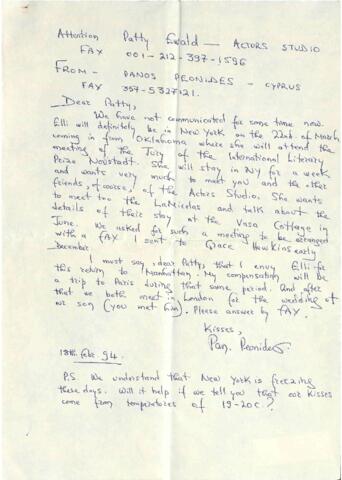 Attention Patty Ewald — ACTORS STUDIO
FAX 001-212-397-1596
FROM - PANOS PEONIDES - CYPRUS
FAX 357-5327121.
Dear Patty,
We have not communicated for some time now.
Elli will definitely be in New York on the 22nd of March
coming in from Oklahoma where she will attend the
meeting of the Jury of the International Literary
Prize Neustadt. She will stay in NY for a week
and wants very much to meet you and the other
friends, of course, of the Actors Studio. She wants
to meet too the and talk about the
details of their stay at the Vasa Cottage in
June. We asked for such a meeting to be arranged
with a FAX I sent to Grace Hawkins early
December.
I must say, dear Patty, that I envy Elli for
this return to Manhattan. My compensation will be
a trip to Paris during that same period. And after
that we both meet in London for the wedding of
our son (you met him). Please answer by FAX.
Kisses,
Pan. Peonides.
18th Feb. 94.
P.S. We understand that New York is freezing
these days. Will it help if we tell you that our kisses
come from temperatures of 19-20c?